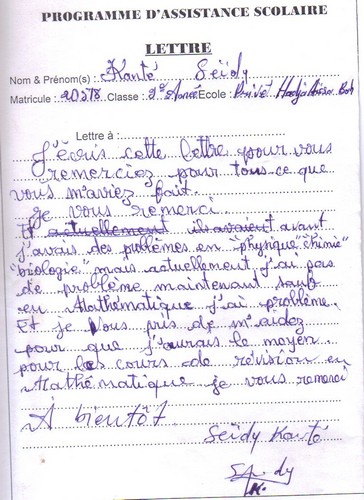 PROGRAMME D'ASSISTANCE SCOLAIRE
LETTRE
Nom & Prénom(s) : Kanté Seïdy
Matricule : 20378 Classe : 9e Année Ecole : Privé Hadja
Lettre à :
J'écris cette lettre pour vous
remerciez pour tous ce que
vous m'aviez fait.
Je vous remerci.
Et actuellement ils avaient avant
j'avais des poblèmes en "physique, chimie"
"biologie" mais actuellement j'ai pas
de problème maintenant sauf
en Mathématique j'ai problème.
Et je vous pris de m'aidez
pour que j'aurais le moyen
pour les cours de révision en
Mathématique je vous remerci
A bientôt.
Seïdy Kanté